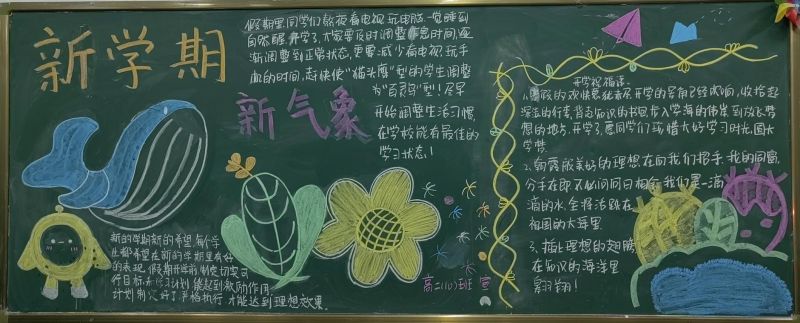 新学期
新气象
假期里同学们熬夜看电视玩电脑一觉睡到
自然醒,开学了,大家要及时调整作息时间,逐
渐调整到正常状态,更要减少看电视玩手
机的时间,尽快使“猫头鹰”型的学生调整
为“百灵鸟”型!尽早
开始调整生活习惯,
在学校能有最佳的
学习状态!
新的学期新的希望,每个学
生都希望在新的学期里有好
的表现,假期开学前制定切实可
行目标和学习计划,能起到激励作用
计划制定好了严格执行,才能达到理想效果。
开学祝福语:
1、暑假的欢快意犹未尽,开学的号角已经吹响,收拾起
深深的行囊,背起知识的书包,步入学海的伟岸,到放飞梦
想的地点,开学了,愿同学们珍惜大好学习时光,圆大
学梦
2、朝露般美好的理想,在向我们招手,我的同窗,
分手在即,不必问何日相会,我们是一滴
滴的水,全将活跃在
祖国的大海里.
3、插上理想的翅膀,
在知识的海洋里
翱翔!
高二(10)班 宣